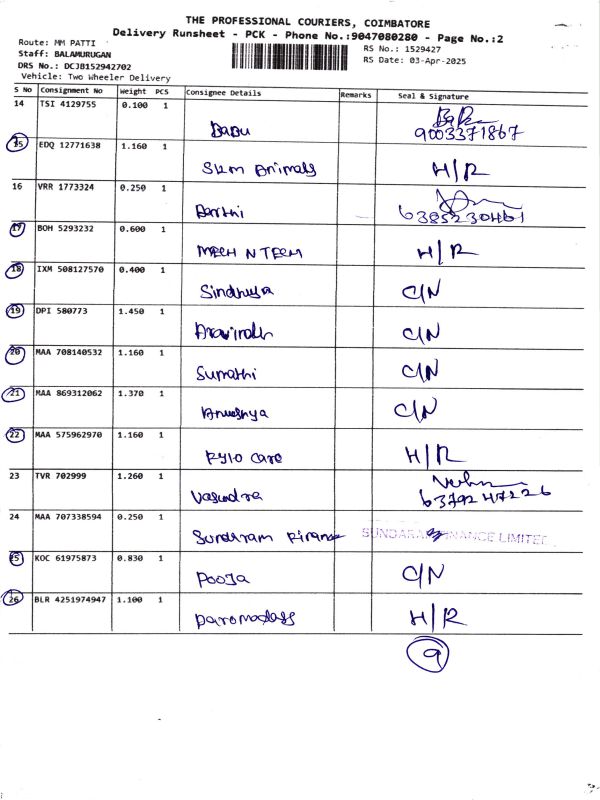 THE PROFESSIONAL COURIERS, COIMBATORE
Delivery Runsheet - PCK - Phone No.:9047080280 - Page No.:2
Route: MM PATTI
RS No.: 1529427
Staff: BALAMURUGAN
RS Date: 03-Apr-2025
DRS No.: DCJ8152942702
Vehicle: Two Wheeler Delivery
S No Consignment No Weight PCS Consignee Details Remarks Seal & Signature
14 TSI 4129755 0.100 1
Babu 9003371867
15 EDQ 12771638 1.160 1
SKM Animals H/R
16 VRR 1773324 0.250 1
6385230461
17 BOH 5293232 0.600 1
MECH N TECH H/R
18 IXM 508127570 0.400 1
Sindhuya C/N
19 DPI 580773 1.450 1
Aravindh C/N
20 MAA 708140532 1.160 1
Sumathi C/N
21 MAA 869312062 1.370 1
Anushya C/N
22 MAA 575962970 1.160 1
care H/R
23 TVR 702999 1.260 1
Vasundra 6379247226
24 MAA 707338594 0.250 1
Sundaram Finance SUNDARAM FINANCE LIMITED
25 KOC 61975873 0.830 1
Pooja C/N
26 BLR 4251974947 1.100 1
H/R
9